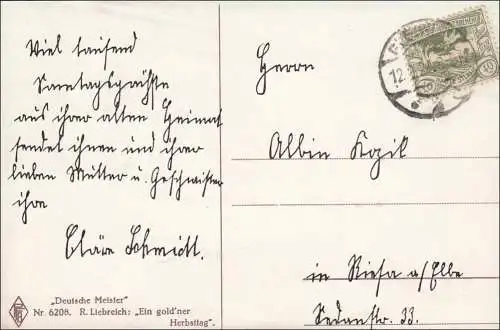 Viel tausend
Sonntagsgrüße
aus ihrer alten Heimat
sendet ihnen und ihrer
lieben Mutter u. Geschwister
ihre
Cläre Schmidt.
Herrn
Albin Kozik
in Riesa a/Elbe
Sedanstr. 33.
12.
„Deutsche Meister“
Nr. 6208. R. Liebreich: „Ein gold'ner
Herbsttag“.